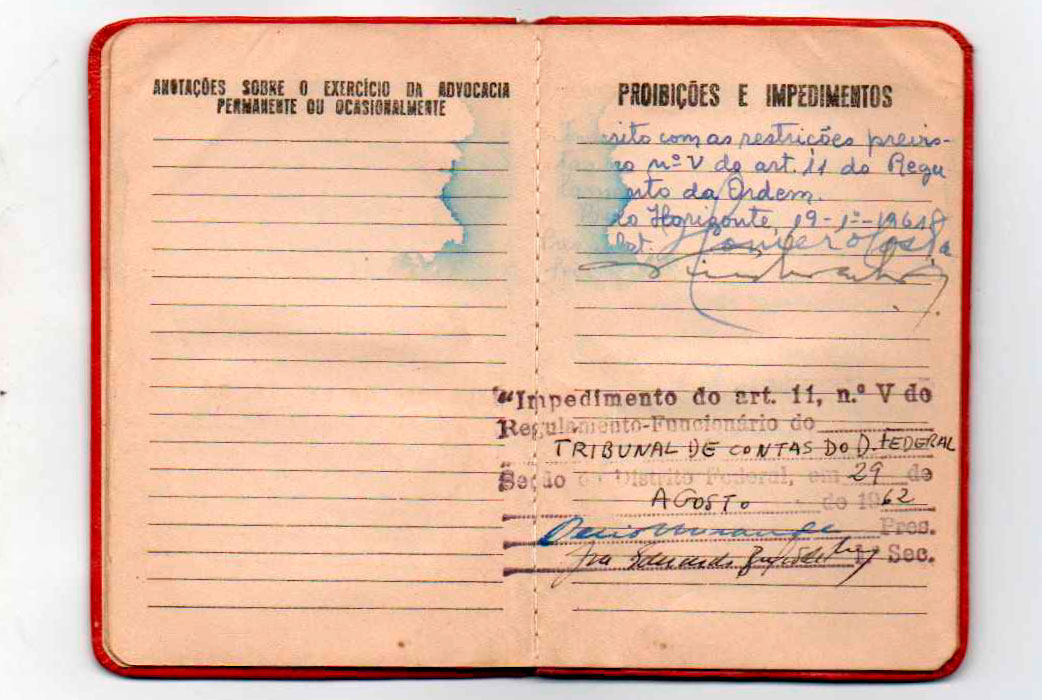 ANOTAÇÕES SOBRE O EXERCÍCIO DA ADVOCACIA
PERMANENTE OU OCASIONALMENTE
PROIBIÇÕES E IMPEDIMENTOS
sito com as restrições previs-
no nº V do art. 11 do Regu
mento da Ordem.
Horizonte, 19-1º-1961
"Impedimento do art. 11, n.º V do
Regulamento-Funcionário do
TRIBUNAL DE CONTAS DO D. FEDERAL
Seção do Distrito Federal, em 29 de
AGOSTO de 1962
Pres.
1º Sec.